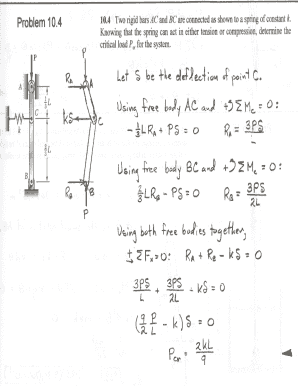 Problem 10.4
10.4 Two rigid bars AC and BC are connected as shown to a spring of constant k.
Knowing that the spring can act in either tension or compression, determine the
critical load Pcr for the system.
P
A
1/3 L
C
k
2/3 L
B
P
RA
A
kδ
C
RB
B
P
Let δ be the deflection of point C.
Using free body AC and +↺ΣMc = 0:
-1/3 LRA + Pδ = 0 RA = 3Pδ/L
Using free body BC and +↺ΣMc = 0:
2/3 LRB - Pδ = 0 RB = 3Pδ/2L
Using both free bodies together,
ΣFx = 0: RA + RB - kδ = 0
3Pδ/L + 3Pδ/2L - kδ = 0
(9/2 P/L - k)δ = 0
Pcr = 2kL/9